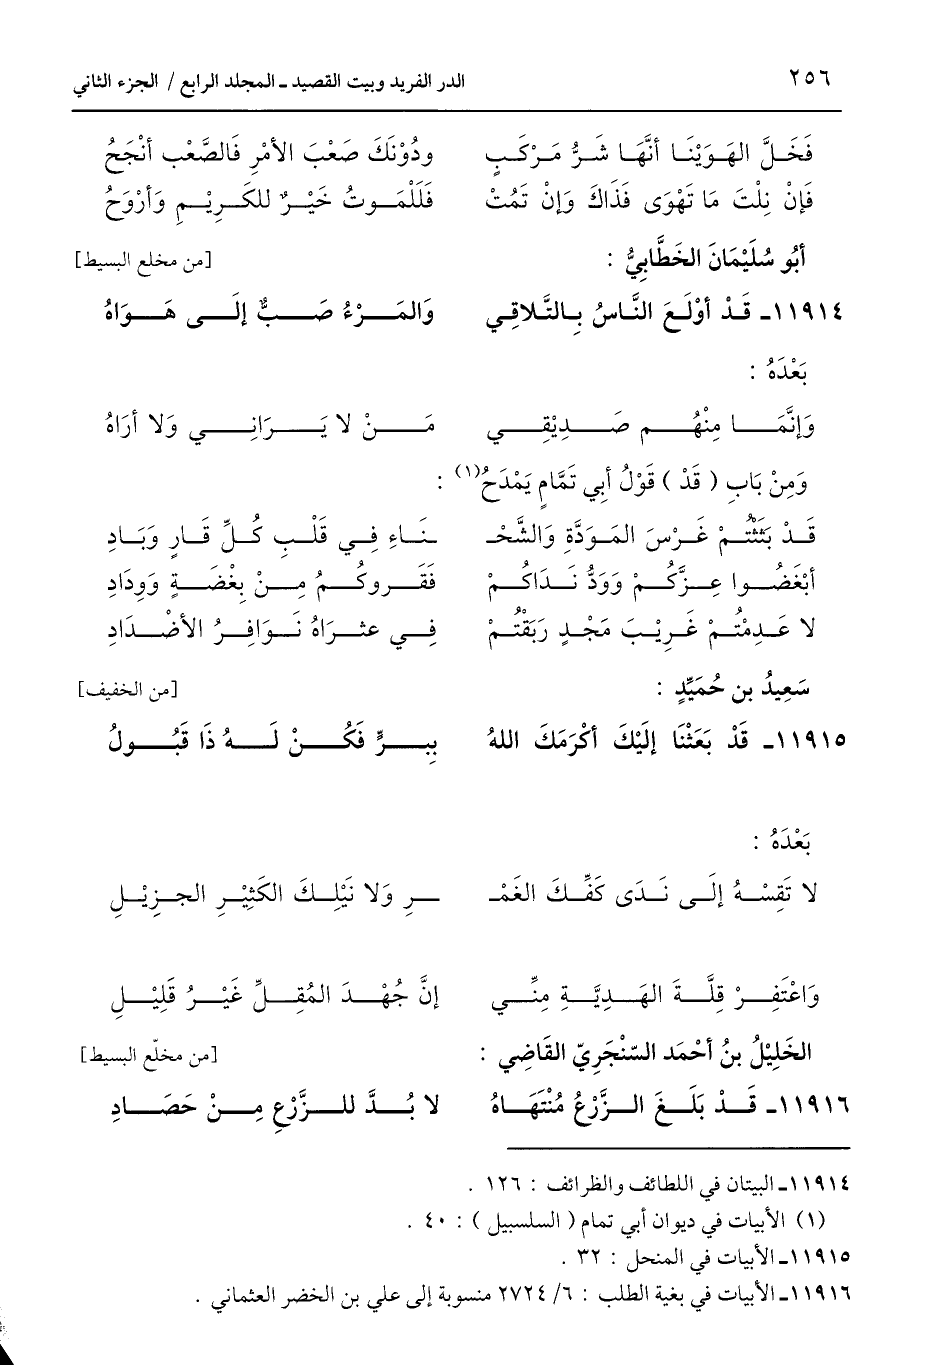 ٢٥٦ الدر الفريد وبيت القصيد ـ المجلد الرابع / الجزء الثاني
فَخَلَّ الهَوَيْنَا أنَّهَا شَرُّ مَرْكَبٍ ودُوْنَكَ صَعْبَ الأمْرِ فَالصَّعْب أنْجَحُ
فَإنْ نِلْتَ مَا تَهْوَى فَذَاكَ وَإنْ تَمُتْ فَلَلْمَوتُ خَيْرٌ للكَرِيْمِ وَأرْوَحُ
أبُو سُلَيْمَانَ الخَطَّابِيُّ : [من مخلع البسيط]
١١٩١٤ـ قَدْ أوْلَعَ النَّاسُ بِالتَّلاقِي وَالمَرْءُ صَبٌّ إلَى هَوَاهُ
بَعْدَهُ :
وَإنَّمَا مِنْهُم صَدِيْقِي مَنْ لا يَرَانِي وَلا أرَاهُ
وَمِنْ بَابِ ( قَدْ ) قَوْلُ أبي تَمَّامٍ يَمْدَحُ(١) :
قَدْ بَثَثْتُمْ غَرْسَ المَوَدَّةِ وَالشَّحْـ ـنَاءِ فِي قَلْبِ كُلِّ قَارٍ وَبَادِ
أبْغَضُوا عِزَّكُمْ وَوَدُّ نَدَاكُمْ فَقَروكُمُ مِنْ بِغْضَةٍ وَوِدَادِ
لا عَدِمْتُمْ غَرِيْبَ مَجْدٍ رَبَقْتُمْ فِي عثرَاهُ نَوَافِرُ الأضْدَادِ
سَعِيدُ بن حُمَيِّدٍ : [من الخفيف]
١١٩١٥ـ قَدْ بَعَثْنَا إلَيْكَ أكْرَمَكَ اللهُ بِبِرٍّ فَكُنْ لَهُ ذَا قَبُولُ
بَعْدَهُ :
لا تَقِسْهُ إلَى نَدَى كَفِّكَ الغَمْـ ـرِ وَلا نَيْلِكَ الكَثِيْرِ الجزِيْلِ
وَاغْتَفِرْ قِلَّةَ الهَدِيَّةِ مِنِّي إنَّ جُهْدَ المُقِلِّ غَيْرُ قَلِيْلِ
الخَلِيْلُ بنُ أحْمَد السّنْجَرِيّ القَاضِي : [من مخلّع البسيط]
١١٩١٦ـ قَدْ بَلَغَ الزَّرْعُ مُنْتَهَاهُ لا بُدَّ للزَّرْعِ مِنْ حَصَادِ
١١٩١٤ـ البيتان في اللطائف والظرائف : ١٢٦ .
(١) الأبيات في ديوان أبي تمام ( السلسبيل ) : ٤٠ .
١١٩١٥ـ الأبيات في المنحل : ٣٢ .
١١٩١٦ـ الأبيات في بغية الطلب : ٦/ ٢٧٢٤ منسوبة إلى علي بن الخضر العثماني .